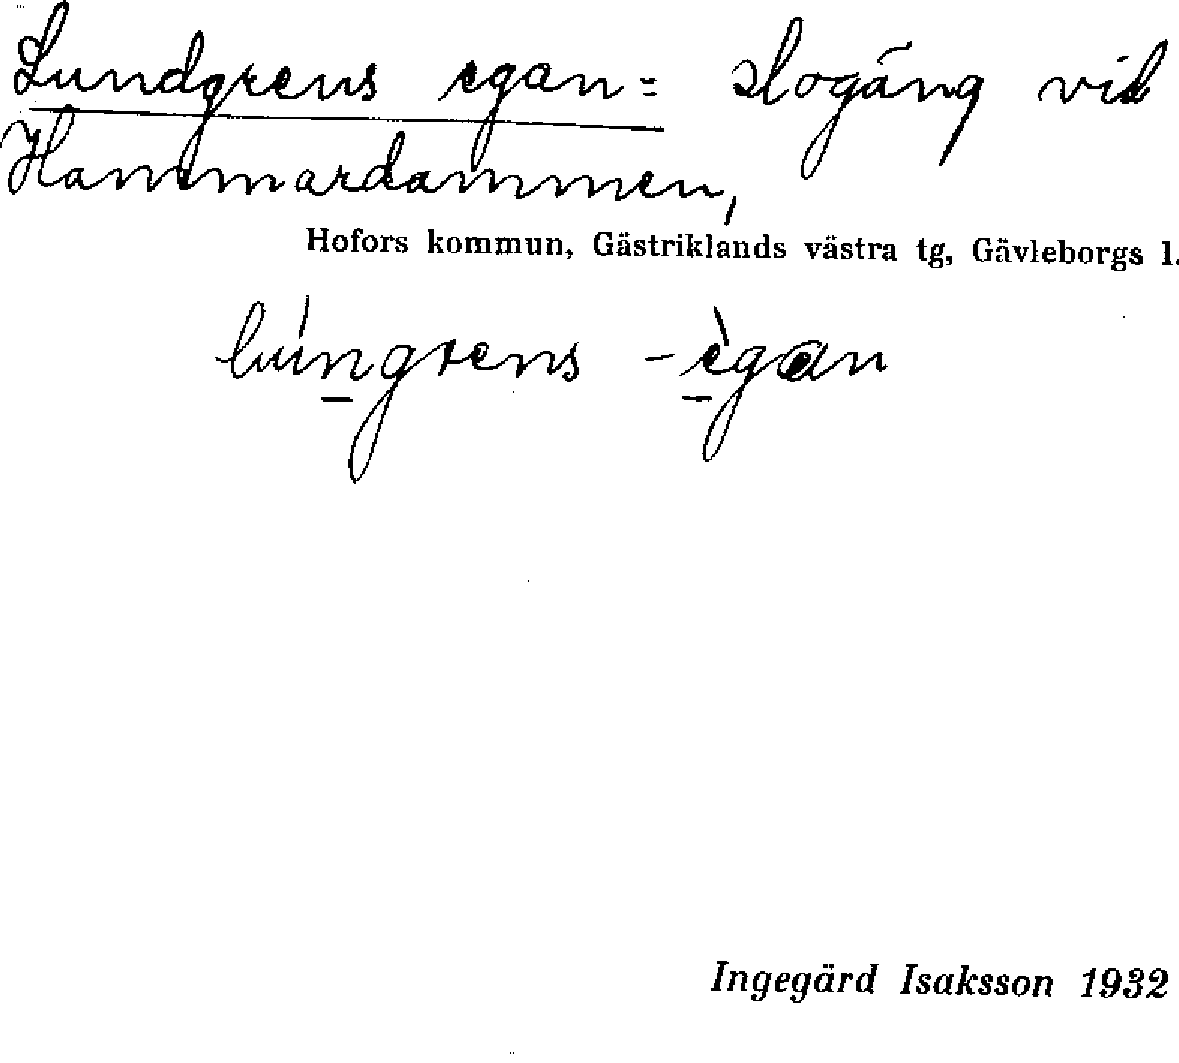 Lundgrens egan = slogång vid
Hammardammen,
Hofors kommun, Gästriklands västra tg, Gävleborgs l.
lúngrens - ègan
Ingegärd Isaksson 1932